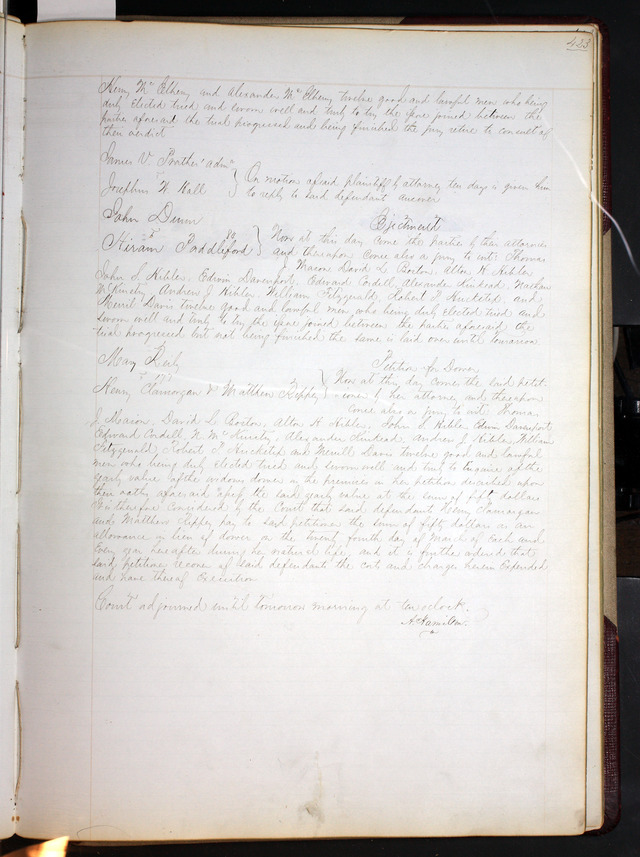 423
Henry McElheny and Alexander McElheny twelve good and lawful men who being
duly Elected tried and sworn well and truly to try the issue joined between the
parties aforesaid the trial progressed and being finished the jury retire to consult of
their verdict
James V. Prather admr
vs
Josephus W. Hall
On motion of said plaintiff by attorney ten days is given him
to reply to said defendants answer
John Dunn
vs
Hiram Paddleford
Ejectment
Now at this day come the parties by their attornies
and thereupon Comes also a jury to wit Thomas
Macon David L. Borton, Alton H Kibler
John S. Kibler, Edwin Davenport, Edward Cordell, Alexander Kinkead, Nathan
McKinsty, Andrew J. Kibler, William Fitzgerald, Robert S. Hucksted, and
Merrit Davis twelve good and lawful men who being duly Elected tried and
sworn well and truly to try the issue joined between the parties aforesaid the
trial progressed but not being finished the same is laid over until tomorrow
Mary
vs
Henry Clamorgan & Matthew Rippey
Petition for Dower
Now at this day comes the said petit-
ioner by her attorney and thereupon
comes also a jury to wit Thomas
J. Macon, David L Borton, Alton H. Kibler, John S. Kibler Edwin Davenport
Edward Cordell, N. McKinsty, Alexander Kinkead Andrew J. Kibler, William
Fitzgerald Robert S. Hucksted and Merritt Davis twelve good and lawful
men who being duly Elected tried and sworn well and truly to Enquire of the
yearly value of the widows dower in the premises in her petition described upon
their oaths aforesaid the said yearly value at the sum of fifty dollars
It is therefore Considered by the Court that said defendants Henry Clamorgan
and Matthew Rippey pay to said petitioner the sum of fifty dollars as an
allowance in lieu of dower on the twenty fourth day of March of Each and
Every year hereafter during her natural life, and it is further ordered that
said petitioner recover of said defendants the costs and charges herein Expended
and have thereof Execution
Court adjourned until tomorrow morning at ten oclock.
A. Hamilton.